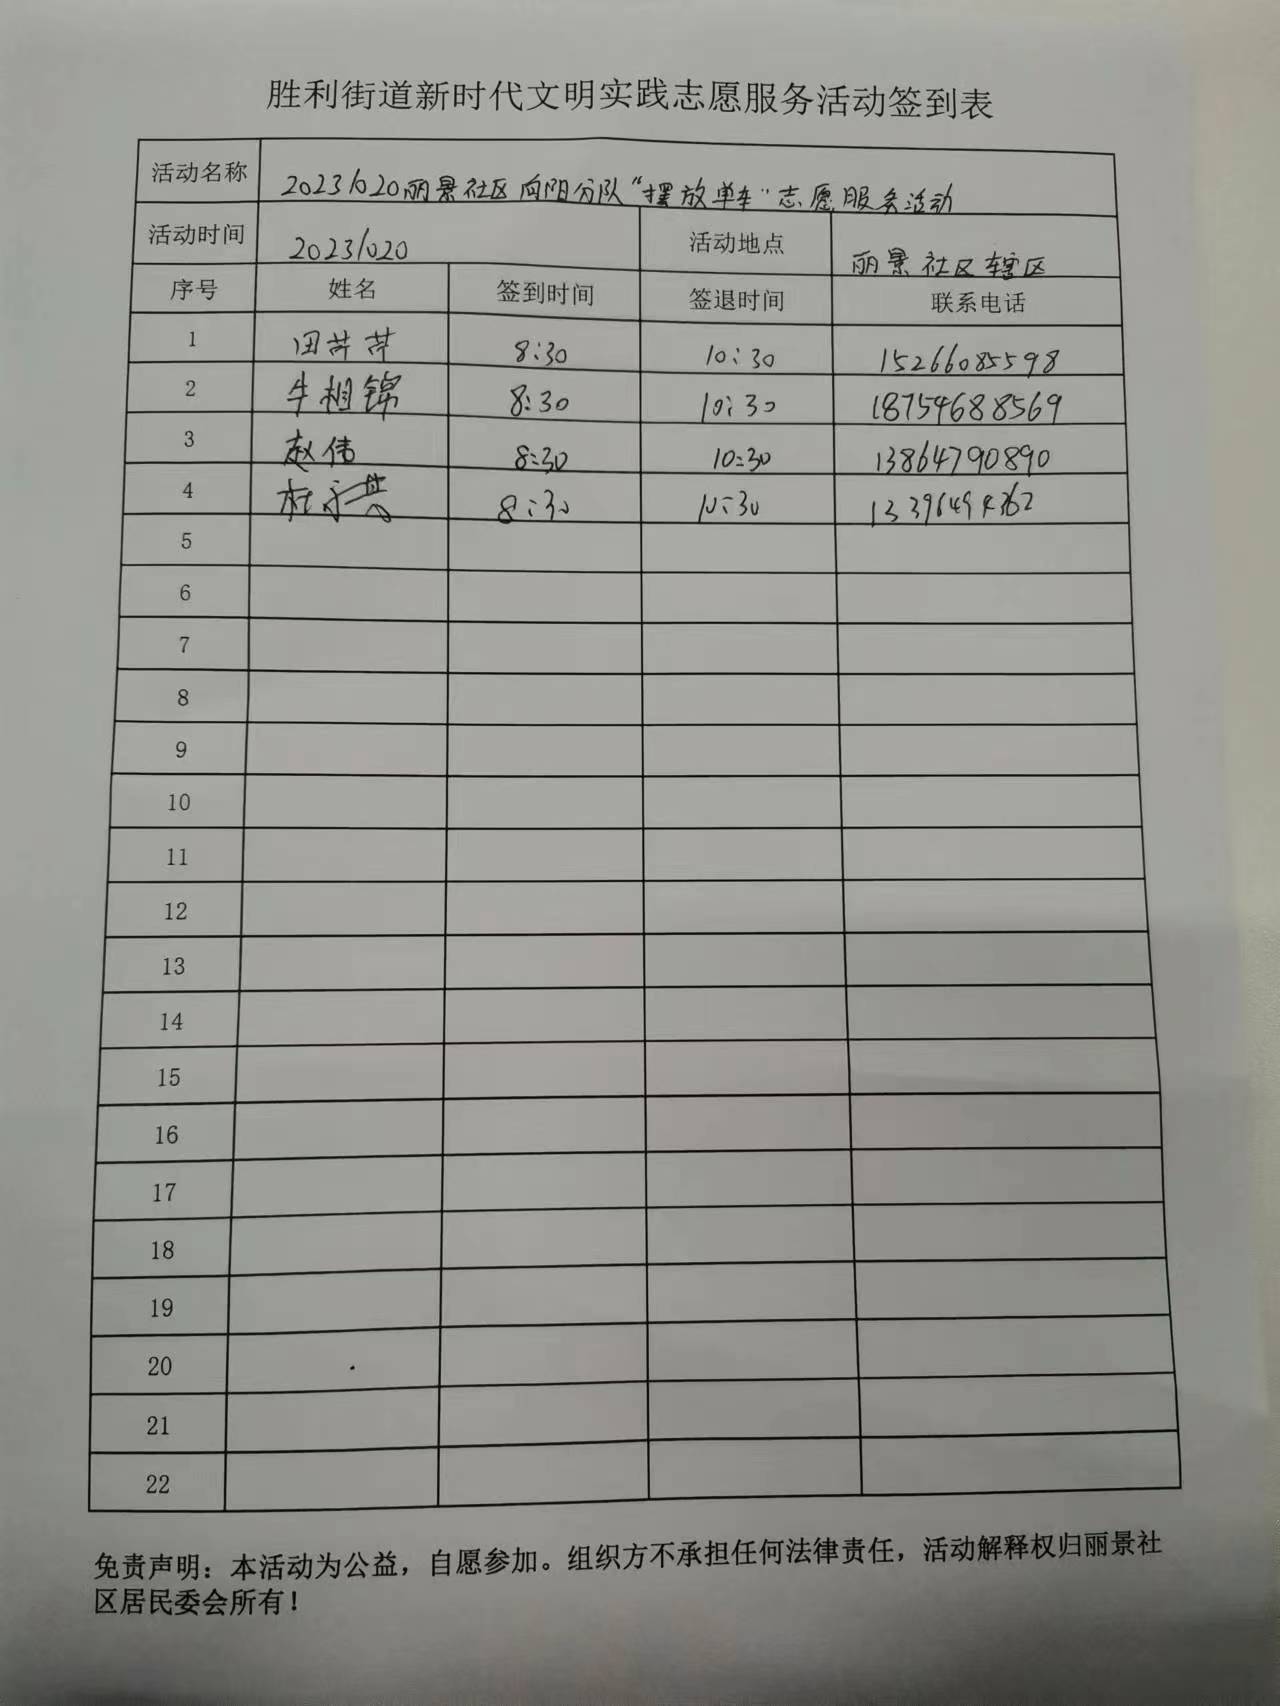 胜利街道新时代文明实践志愿服务活动签到表
活动名称 20231020丽景社区向阳分队“摆放单车”志愿服务活动
活动时间 20231020 活动地点 丽景社区辖区
序号 姓名 签到时间 签退时间 联系电话
1 田芹芹 8:30 10:30 15266085598
2 牛相锦 8:30 10:30 18754688569
3 赵伟 8:30 10:30 13864790890
4 杜 8:30 10:30 13396494362
5
6
7
8
9
10
11
12
13
14
15
16
17
18
19
20
21
22
免责声明：本活动为公益，自愿参加。组织方不承担任何法律责任，活动解释权归丽景社
区居民委会所有！